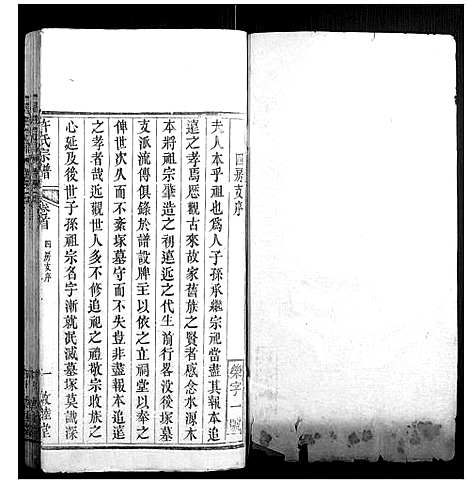 四房支序
夫人本乎祖也為人子孫承繼宗祖當盡其報本追
遠之孝焉歷觀古來故家舊族之賢者感念水源木
本將祖宗肇造之初遠近之代生前行畧沒後塚墓
支派流傳俱錄於譜設牌主以依之立祠堂以奉之
俾世次久而不紊塚墓守而不失豈非盡報本追遠
之孝者哉近觀世人多不修追祀之禮敬宗收族之
心延及後世子孫祖宗名字漸就泯滅墓塚莫識深
許氏宗譜
卷首
四房支序
一
敦睦堂
榮字一號